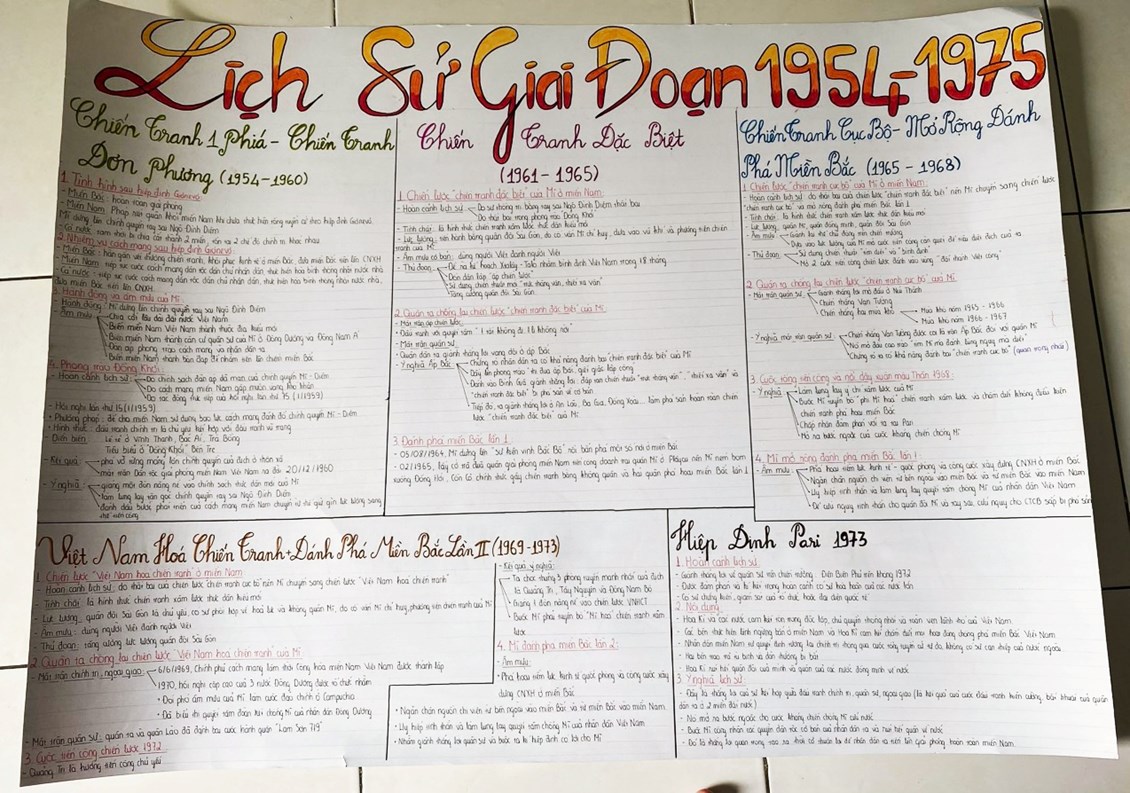 Lịch Sử Giai Đoạn 1954-1975
Chiến Tranh 1 Phiá - Chiến Tranh
Đơn Phương (1954-1960)
1. Tình hình sau hiệp định Giơnevơ:
- Miền Bắc: hoàn toàn giải phóng
- Miền Nam: Pháp rút quân khỏi miền Nam khi chưa thực hiện tổng tuyển cử theo hiệp định Giơnevơ.
Mĩ dựng lên chính quyền tay sai Ngô Đình Diệm
- Cả nước: nước ta bị chia cắt thành 2 miền, với 2 chế độ chính trị khác nhau
2. Nhiệm vụ cách mạng sau hiệp định Giơnevơ:
- Miền Bắc: hàn gắn vết thương chiến tranh, khôi phục kinh tế ở miền Bắc, đưa miền Bắc tiến lên CNXH
- Miền Nam: tiếp tục cuộc cách mạng dân tộc dân chủ nhân dân, thực hiện hoà bình thống nhất nước nhà
- Cả nước: tiếp tục cuộc cách mạng dân tộc dân chủ nhân dân, thực hiện hòa bình thống nhất nước nhà,
đưa miền Bắc tiến lên CNXH
3. Hành động và âm mưu của Mĩ:
- Hành động: Mĩ dựng lên chính quyền tay sai Ngô Đình Diệm
- Âm mưu: Chia cắt lâu dài đất nước Việt Nam
Biến miền Nam Việt Nam thành thuộc địa kiểu mới
Biến miền Nam thành căn cứ quân sự của Mĩ ở Đông Dương và Đông Nam Á
Đàn áp phong trào cách mạng và nhân dân ta
4. Phong trào Đồng Khởi:
- Hoàn cảnh lịch sử: Do chính sách đàn áp dã man của chính quyền Mĩ - Diệm
Do cách mạng miền Nam gặp muôn vàng khó khăn
Do tác động trực tiếp của hội nghị lần thứ 15 (1/1959)
- Hội nghị lần thứ 15 (1/1959)
+ Phương pháp: để cho miền Nam sử dụng bạo lực cách mạng đánh đổ chính quyền Mĩ - Diệm
+ Hình thức: đấu tranh chính trị là chủ yếu kết hợp với đấu tranh vũ trang
- Diễn biến: Lẻ tẻ ở Vĩnh Thạnh, Bác Ái, Trà Bồng
Tiêu biểu ở "Đồng Khởi" Bến Tre
- Kết quả: phá vỡ từng mảng lớn chính quyền của địch ở thôn xã
mặt trận Dân tộc giải phóng miền Nam Việt Nam ra đời 20/12/1960
- Ý nghĩa: giáng một đòn nặng nề vào chính sách thực dân mới của Mĩ
làm lung lay tận gốc chính quyền tay sai Ngô Đình Diệm
đánh dấu bước phát triển của cách mạng miền Nam chuyển từ thế giữ gìn lực lượng sang
thế tiến công
Chiến Tranh Đặc Biệt
(1961-1965)
1. Chiến lược "chiến tranh đặc biệt" của Mĩ ở miền Nam:
- Hoàn cảnh lịch sử:
Do thất bại trong phong trào Đồng Khởi
- Tính chất: là hình thức chiến tranh xâm lược thực dân kiểu mới
- Lực lượng: tiến hành bằng quân đội Sài Gòn, do cố vấn Mĩ chỉ huy, dựa vào vũ khí và phương tiện chiến
tranh của Mĩ
- Âm mưu cơ bản: dùng người Việt đánh người Việt
- Thủ đoạn: Đề ra kế hoạch Xtalây - Taylo nhằm bình định Việt Nam trong 18 tháng
Dồn dân lập "ấp chiến lược"
Sử dụng chiến thuật mới "trực thăng vận, thiết xa vận"
Tăng cường quân đội Sài Gòn
2. Quân ta chống lại chiến lược "chiến tranh đặc biệt" của Mĩ:
- Mặt trận ấp chiến lược:
- Đấu tranh với quyết tâm "1 tấc không đi, 1 li không rời"
- Mặt trận quân sự:
- Quân dân ta giành thắng lợi vang dội ở ấp Bắc
- Ý nghĩa Ấp Bắc: Chứng tỏ nhân dân ta có khả năng đánh bại "chiến tranh đặc biệt" của Mĩ
Dấy lên phong trào "thi đua Ấp Bắc, giết giặc lập công"
"chiến tranh đặc biệt" bị phá sản về cơ bản
Tiếp đó, ta giành thắng lợi ở An Lão, Ba Gia, Đồng Xoài... làm phá sản hoàn toàn chiến
lược "chiến tranh đặc biệt" của Mĩ
3. Đánh phá miền Bắc lần 1
- 05/08/1964, Mĩ dựng lên "sự kiện vịnh Bắc Bộ" ném bắn phá một số nơi ở miền Bắc
- 02/1965, lấy cớ trả đũa quân giải phóng miền Nam tiến công doanh trại quân Mĩ ở Plâycu nên Mĩ ném bom
Chiến Tranh Cục Bộ - Mở Rộng Đánh
Phá Miền Bắc (1965 - 1968)
1. Chiến lược "chiến tranh cục bộ" của Mĩ ở miền Nam:
- Hoàn cảnh lịch sử: do thất bại của chiến lược "chiến tranh đặc biệt" nên Mĩ chuyển sang chiến lược
"chiến tranh cục bộ" và mở rộng đánh phá miền Bắc lần 1
- Tính chất: là hình thức chiến tranh xâm lược thực dân kiểu mới
- Lực lượng: quân Mĩ, quân đồng minh, quân đội Sài Gòn
- Âm mưu: Giành lại thế chủ động trên chiến trường
- Thủ đoạn: Sử dụng chiến thuật "tìm diệt" và "bình định"
Mở 2 cuộc tiến công chiến lược đánh vào vùng "đất thánh Việt cộng"
2. Quân ta chống lại chiến lược "chiến tranh cục bộ" của Mĩ
- Mặt trận quân sự: Giành thắng lợi mở đầu ở Núi Thành
Chiến thắng Vạn Tường
Chiến thắng hai mùa khô: Mùa khô năm 1965 - 1966
Mùa khô năm 1966 - 1967
- Ý nghĩa mặt trận quân sự: Chiến thắng Vạn Tường được coi là trận Ấp Bắc đối với quân Mĩ
Nó mở đầu cao trào "tìm Mĩ mà đánh, lùng ngụy mà diệt"
Chứng tỏ ta có khả năng đánh bại "chiến tranh cục bộ" (quan trọng nhất)
3. Cuộc tổng tiến công và nổi dậy xuân Mậu Thân 1968:
- Ý nghĩa: Làm lung lay ý chí xâm lược của Mĩ
Buộc Mĩ tuyên bố "phi Mĩ hoá" chiến tranh xâm lược và chấm dứt không điều kiện
chiến tranh phá hoại miền Bắc
Chấp nhận đàm phán với ta tại Pari
Mở ra bước ngoặt của cuộc kháng chiến chống Mĩ
4. Mĩ mở rộng đánh phá miền Bắc lần 1:
- Âm mưu: Phá hoại tiềm lực kinh tế - quốc phòng và công cuộc xây dựng CNXH ở miền Bắc
Ngăn chặn nguồn chi viện từ bên ngoài vào miền Bắc và từ miền Bắc vào miền Nam
Uy hiếp tinh thần và làm lung lay quyết tâm chống Mĩ của nhân dân Việt Nam
Việt Nam Hoá Chiến Tranh + Đánh Phá Miền Bắc Lần II (1969-1973)
1. Chiến lược "Việt Nam hoá chiến tranh" ở miền Nam
- Hoàn cảnh lịch sử: do thất bại của chiến lược "chiến tranh cục bộ" nên Mĩ chuyển sang chiến lược "Việt Nam hoá chiến tranh"
- Tính chất: là hình thức chiến tranh xâm lược thực dân kiểu mới
- Lực lượng: quân đội Sài Gòn là chủ yếu, có sự phối hợp về hoả lực và không quân Mĩ, do cố vấn Mĩ chỉ huy, phương tiện chiến tranh của Mĩ
- Âm mưu: dùng người Việt đánh người Việt
- Thủ đoạn: tăng cường lực lượng quân đội Sài Gòn
2. Quân ta chống lại chiến lược "Việt Nam hoá chiến tranh" của Mĩ:
- Mặt trận chính trị, ngoại giao: 6/6/1969, Chính phủ cách mạng lâm thời Cộng hoà miền Nam Việt Nam được thành lập
1970, hội nghị cấp cao của 3 nước Đông Dương được tổ chức nhằm
• Đối phó âm mưu của Mĩ làm cuộc đảo chính ở Campuchia
• Đã biểu thị quyết tâm đoàn kết chống Mĩ của nhân dân Đông Dương
- Mặt trận quân sự: quân ta và quân Lào đã đánh bại cuộc hành quân "Lam Sơn 719"
3. Cuộc tiến công chiến lược 1972:
- Quảng Trị là hướng tiến công chủ yếu
- Kết quả, ý nghĩa:
Ta chọc thủng 3 phòng tuyến mạnh nhất của địch
là Quảng Trị, Tây Nguyên và Đông Nam Bộ
Giáng 1 đòn nặng nề vào chiến lược VNHCT
Buộc Mĩ phải tuyên bố "Mĩ hoá" chiến tranh xâm
lược
4. Mĩ đánh phá miền Bắc lần 2:
- Âm mưu:
• Phá hoại tiềm lực kinh tế quốc phòng và công cuộc xây
dựng CNXH ở miền Bắc
• Ngăn chặn nguồn chi viện từ bên ngoài vào miền Bắc và từ miền Bắc vào miền Nam
• Uy hiếp tinh thần và làm lung lay quyết tâm chống Mĩ của nhân dân Việt Nam
• Nhằm giành thắng lợi quân sự và buộc ta kí hiệp định có lợi cho Mĩ
Hiệp Định Pari 1973
1. Hoàn cảnh lịch sử:
- Giành thắng lợi về quân sự trên chiến trường: Điện Biên Phủ trên không 1972
2. Nội dung:
- Hoa Kì và các nước cam kết tôn trọng độc lập, chủ quyền thống nhất và toàn vẹn lãnh thổ của Việt Nam
- Nhân dân miền Nam tự quyết định tương lai chính trị thông qua cuộc tổng tuyển cử tự do, không có sự can thiệp của nước ngoài
- Hai bên trao trả tù binh và dân thường bị bắt
- Hoa Kì rút hết quân đội của mình và quân của các nước đồng minh về nước
3. Ý nghĩa lịch sử:
- Đây là thắng lợi của sự kết hợp giữa đấu tranh chính trị, quân sự, ngoại giao (là kết quả của cuộc đấu tranh kiên cường, bất khuất của quân
dân ta ở 2 miền đất nước)
- Nó mở ra bước ngoặc cho cuộc kháng chiến chống Mĩ cứu nước
- Buộc Mĩ công nhận các quyền dân tộc cơ bản của nhân dân ta và rút hết quân về nước
- Đó là thắng lợi quan trọng tạo ra thời cơ thuận lợi để nhân dân ta tiến tới giải phóng hoàn toàn miền Nam